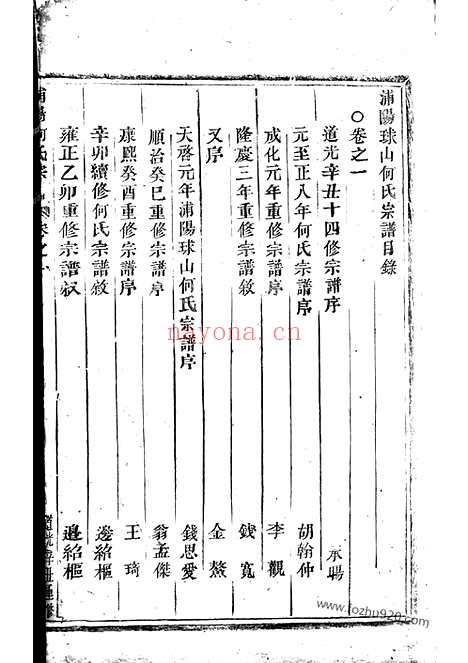 浦陽球山何氏宗譜目錄
○卷之一
道光辛丑十四修宗譜序 承暘
元至正八年何氏宗譜序 胡翰仲
成化元年重修宗譜序 李觀
隆慶三年重修宗譜敘 錢寬
又序 金鰲
天啓元年浦陽球山何氏宗譜序 錢思愛
順治癸巳重修宗譜序 翁孟傑
康熙癸酉重修宗譜序 王琦
辛卯續修何氏宗譜敘 邊紹樞
雍正乙卯重修宗譜敘 邊紹樞
浦陽何氏宗 卷之一
道光辛丑重修
nayona.cn
www.fozhu920.com